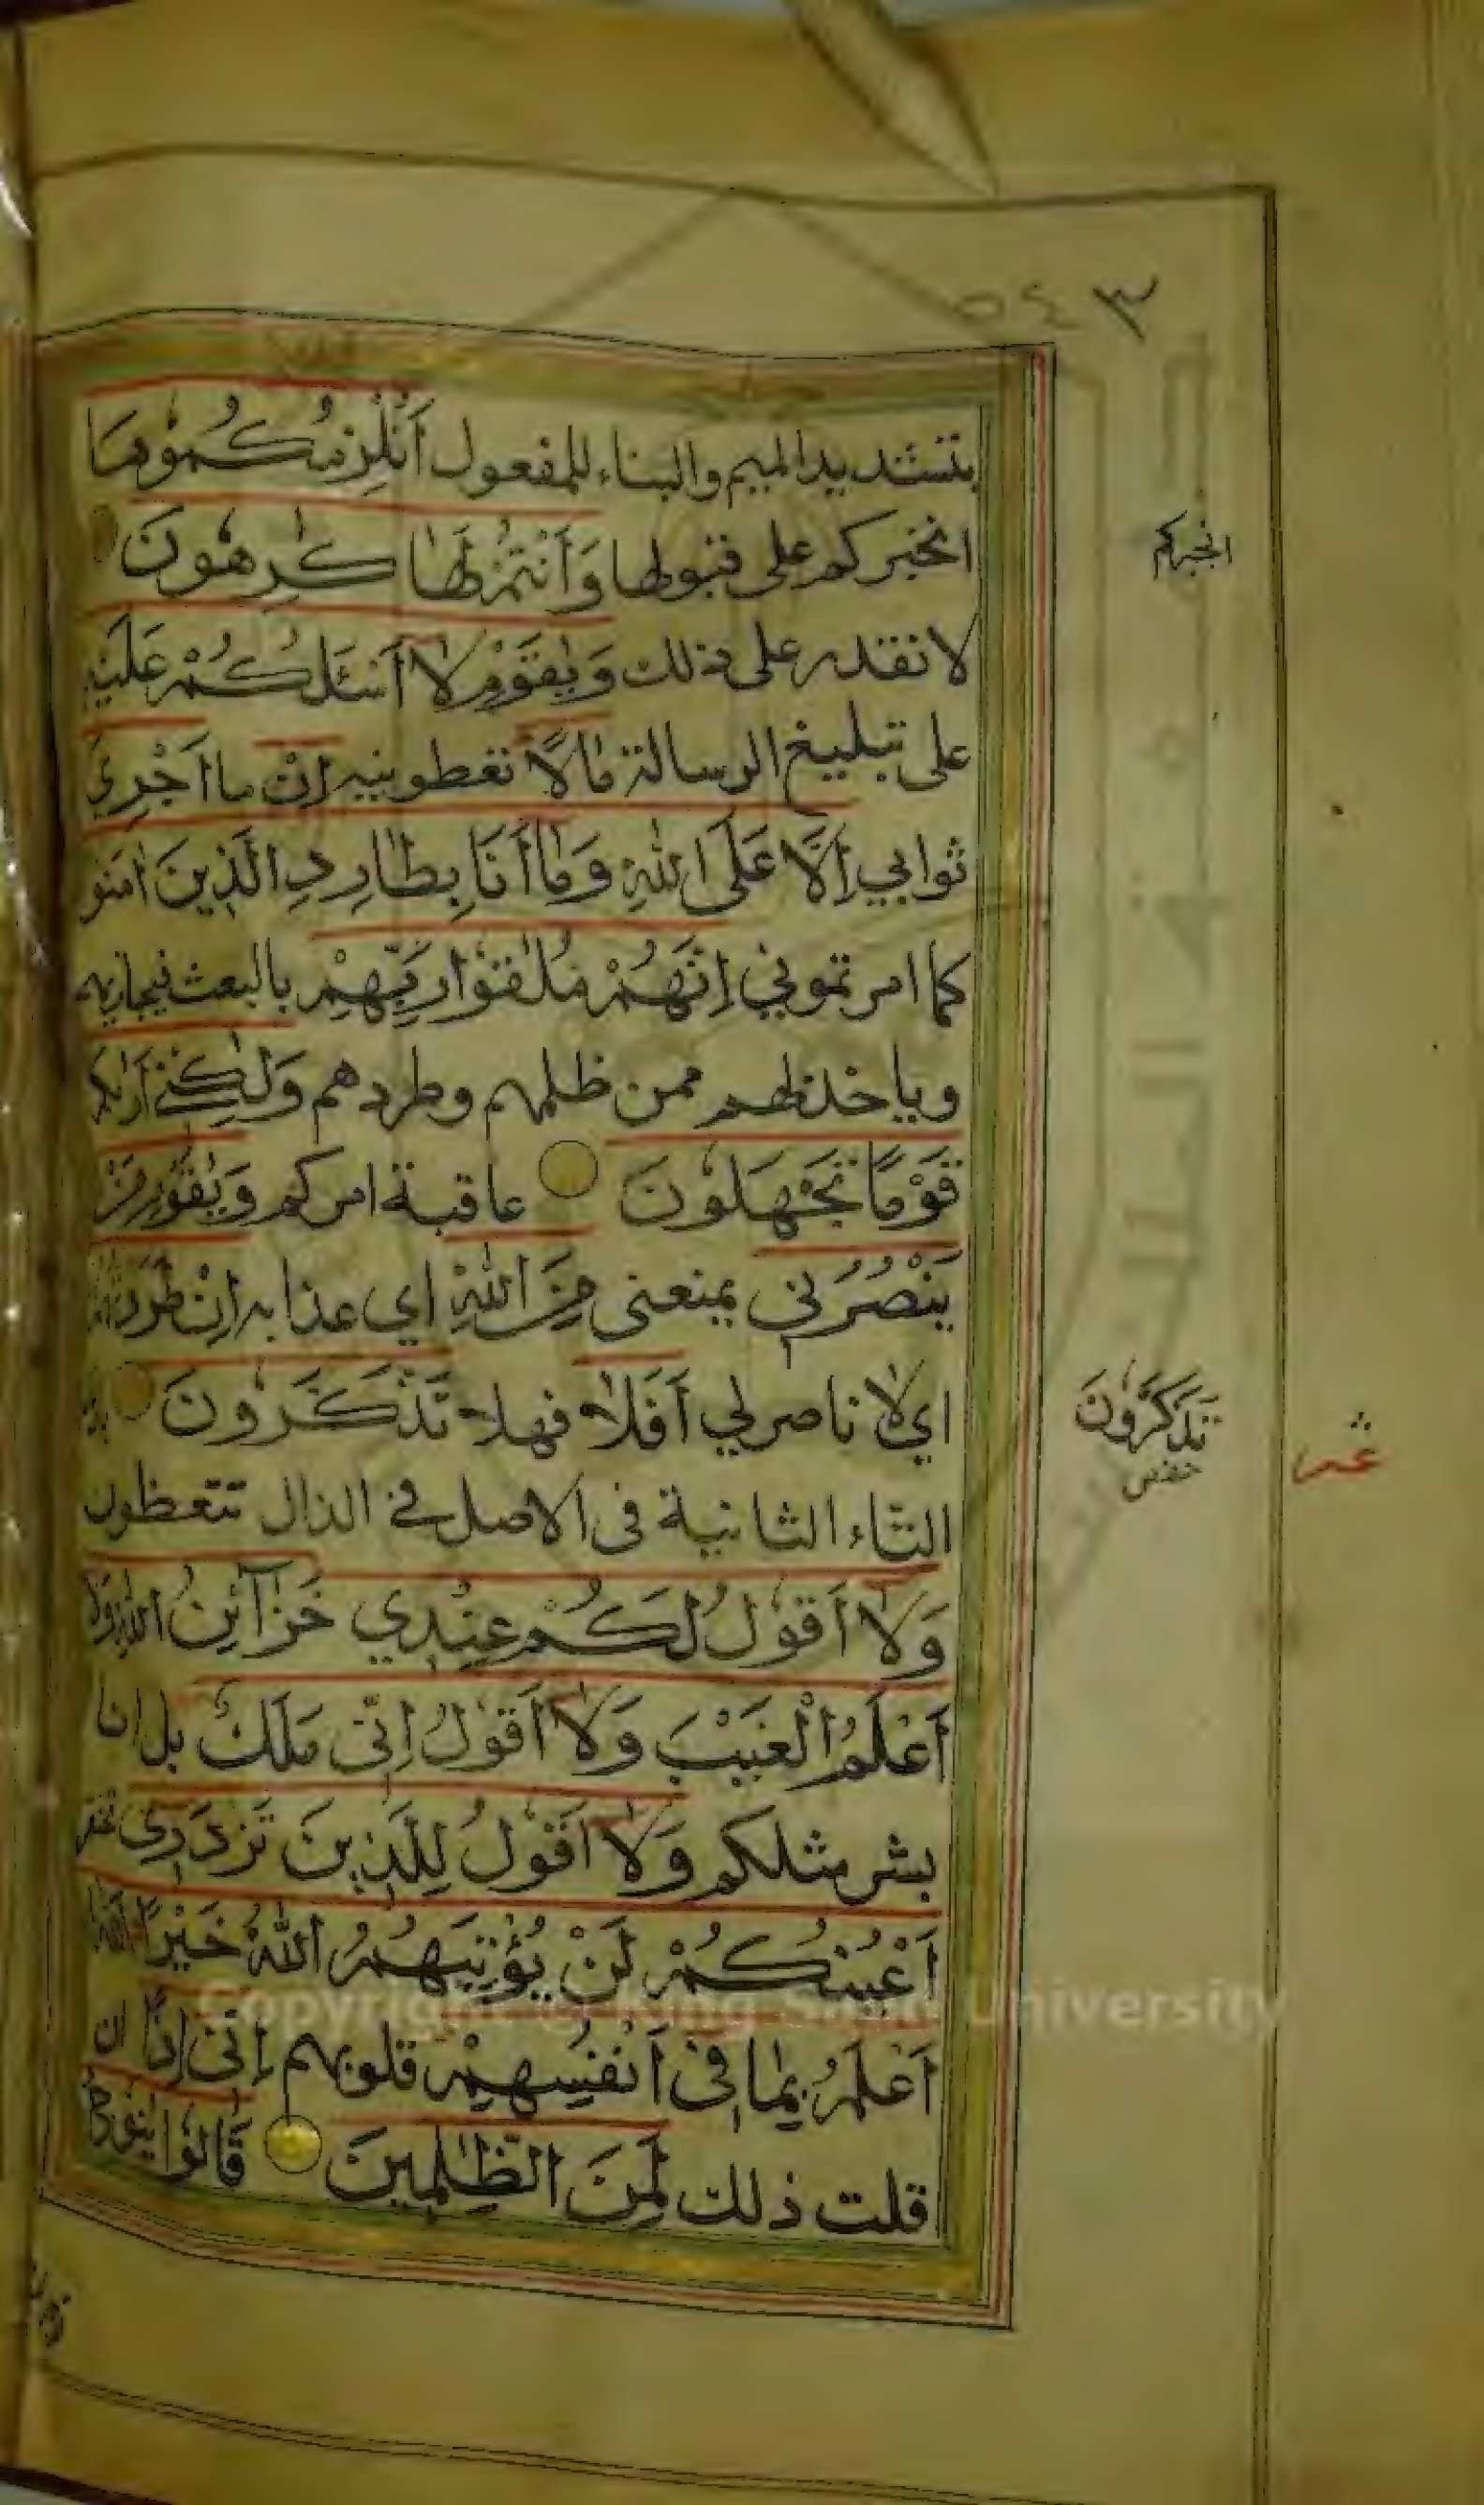 ٥٤٣
بتشديد الميم والبناء للمفعول أَنُلْزِمُكُمُوْهَا
انخبركم على قبولها وَأَنْتُمْ لَهَا كٰرِهُونَ
انجبركم
لا نقدر على ذلك وَيٰقَوْمِ لَا أَسْئَلُكُمْ عَلَيْهِ
على تبليغ الرسالة مَالًا تعطونيه إِنْ ما أَجْرِيَ
ثوابي إِلَّا عَلَى اللّٰهِ وَمَا أَنَا بِطَارِدِ الَّذِينَ اٰمَنُو
كما امرتموني إِنَّهُمْ مُلٰقُوْا رَبِّهِمْ بالبعث فيجازيهم
وياخذ لهم ممن ظلمهم وطردهم وَلٰكِنِّي أَرٰىكُمْ
قَوْمًا تَجْهَلُونَ عاقبة امركم وَيٰقَوْمِ مَنْ
يَنْصُرُنِي يمنعنى مِنَ اللّٰهِ اي عذابه إِنْ طَرَدْتُهُمْ
اي لا ناصر لي أَفَلَا فهلا تَذَّكَّرُونَ
تَذَكَّرُونَ
حفص
التاء الثانية فى الاصل في الذال تتعظون
وَلَا أَقُوْلُ لَكُمْ عِنْدِي خَزَآئِنُ اللّٰهِ وَلَا
أَعْلَمُ الْغَيْبَ وَلَا أَقُوْلُ إِنِّى مَلَكٌ بل انا
بشر مثلكم وَلَا أَقُوْلُ لِلَّذِينَ تَزْدَرِى تحتقر
أَعْيُنُكُمْ لَنْ يُؤْتِيَهُمُ اللّٰهُ خَيْرًا اللّٰهُ
أَعْلَمُ بِمَا فِى أَنْفُسِهِمْ قلوبهم إِنِّى إِذًا ان
قلت ذلك لَمِنَ الظّٰلِمِينَ قَالُوْا يٰنُوْحُ
Copyright © King Saud University